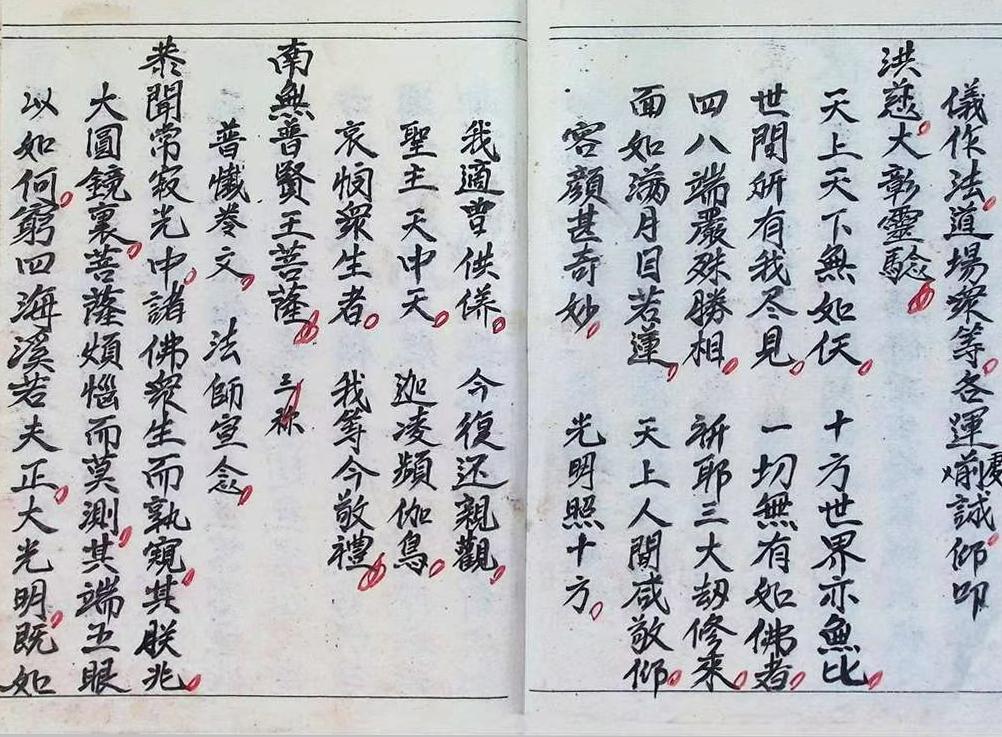 儀作法道場衆等各運虔誠仰叩
洪慈大彰靈驗
天上天下無如仸 十方世界亦無比
世間所有我尽見 一切無有如佛者
四八端嚴殊勝相 祈耶三大劫修來
面如滿月目若蓮 天上人間咸敬仰
容顏甚奇妙 光明照十方
我適曽供養 今復还親觀
聖主天中天 迦凌頻伽鳥
哀悯衆生者 我等今敬禮
南無普賢王菩薩 三称
普懺卷文 法師宣念
恭聞常寂光中諸佛衆生而孰窺其朕兆
大圓鏡裏菩薩煩惱而莫測其端五眼
以如何窮四海溪若夫正大光明既如